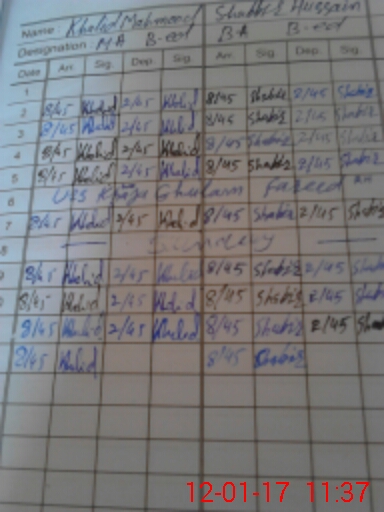 Name: Khalid Mahmood Shabbir Hussain
Designation: MA B-ed BA B-ed
Date Arr. Sig. Dep. Sig. Arr. Sig. Dep. Sig.
1
2 8/45 Khalid 2/45 Khalid 8/45 Shabir 2/45 Shabir
3 8/45 Khalid 2/45 Khalid 8/45 Shabir 2/45 Shabir
4 8/45 Khalid 2/45 Khalid 8/45 Shabir 2/45 Shabir
5 8/45 Khalid 2/45 Khalid 8/45 Shabir 2/45 Shabir
6 Urs Khaja Ghulam Fareed
7 8/45 Khalid 2/45 Khalid 8/45 Shabir 2/45 Shabir
8 Sunday
9 8/45 Khalid 2/45 Khalid 8/45 Shabir 2/45 Shabir
8/45 Khalid 2/45 Khalid 8/45 Shabir 2/45 Shab
8/45 Khalid 2/45 Khalid 8/45 Shabir 2/45 Shab
8/45 Khalid 8/45 Shabir
12-01-17 11:37